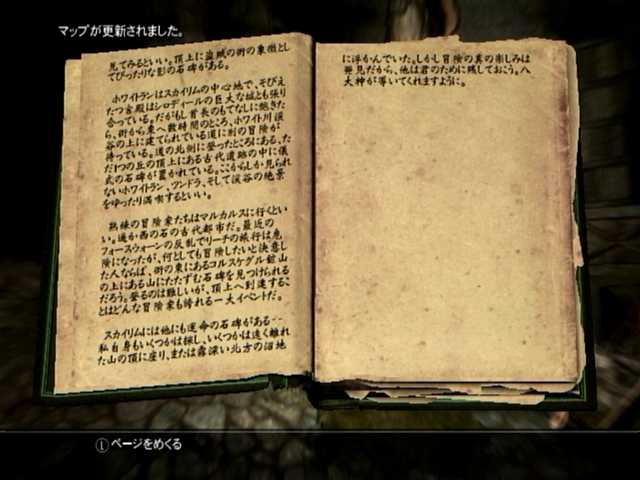 マップが更新されました。
見てみるといい。頂上に盗賊の街の象徴とし
てぴったりな影の石碑がある。
ホワイトランはスカイリムの中心地で、そびえ
たつ宮殿はシロディールの巨大な城とも張り
合っている。だがもし首長のもてなしに飽きた
ら、街から東へ数時間のところ、ホワイト川渓
谷の上に建てられている道に別の冒険が
待っている。道の北側に登ったところにある、た
だ1つの丘の頂上にある古代遺跡の中に儀
式の石碑が置かれている。ここからしか見られ
ないホワイトラン、ツンドラ、そして渓谷の絶景
をゆったり満喫するといい。
熟練の冒険家たちはマルカルスに行くとい
い。遙か西の石の古代都市だ。最近の
フォースウォーンの反乱でリーチの旅行は危
険になったが、何としても冒険したいと決意し
たんならば、街の東にあるコルスケグル鉱山
の上にある山にたたずむ石碑を見つけられる
だろう。登るのは難しいが、頂上へ到達するこ
とはどんな冒険家も誇れる一大イベントだ。
スカイリムには他にも運命の石碑がある--
私自身もいくつかは探し、いくつかは遠く離れ
た山の頂に座り、または霧深い北方の沼地
に浮かんでいた。しかし冒険の真の楽しみは
発見だから、他は君のために残しておこう。八
大神が導いてくれますように。
ページをめくる